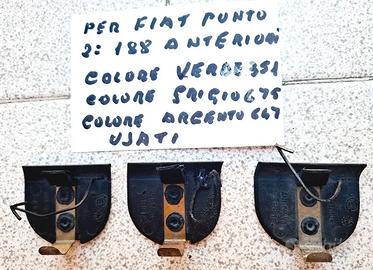 PER FIAT PUNTO
2: 188 ANTERIORI
COLORE VERDE 351
COLORE GRIGIO 675
COLORE ARGENTO 647
USATI